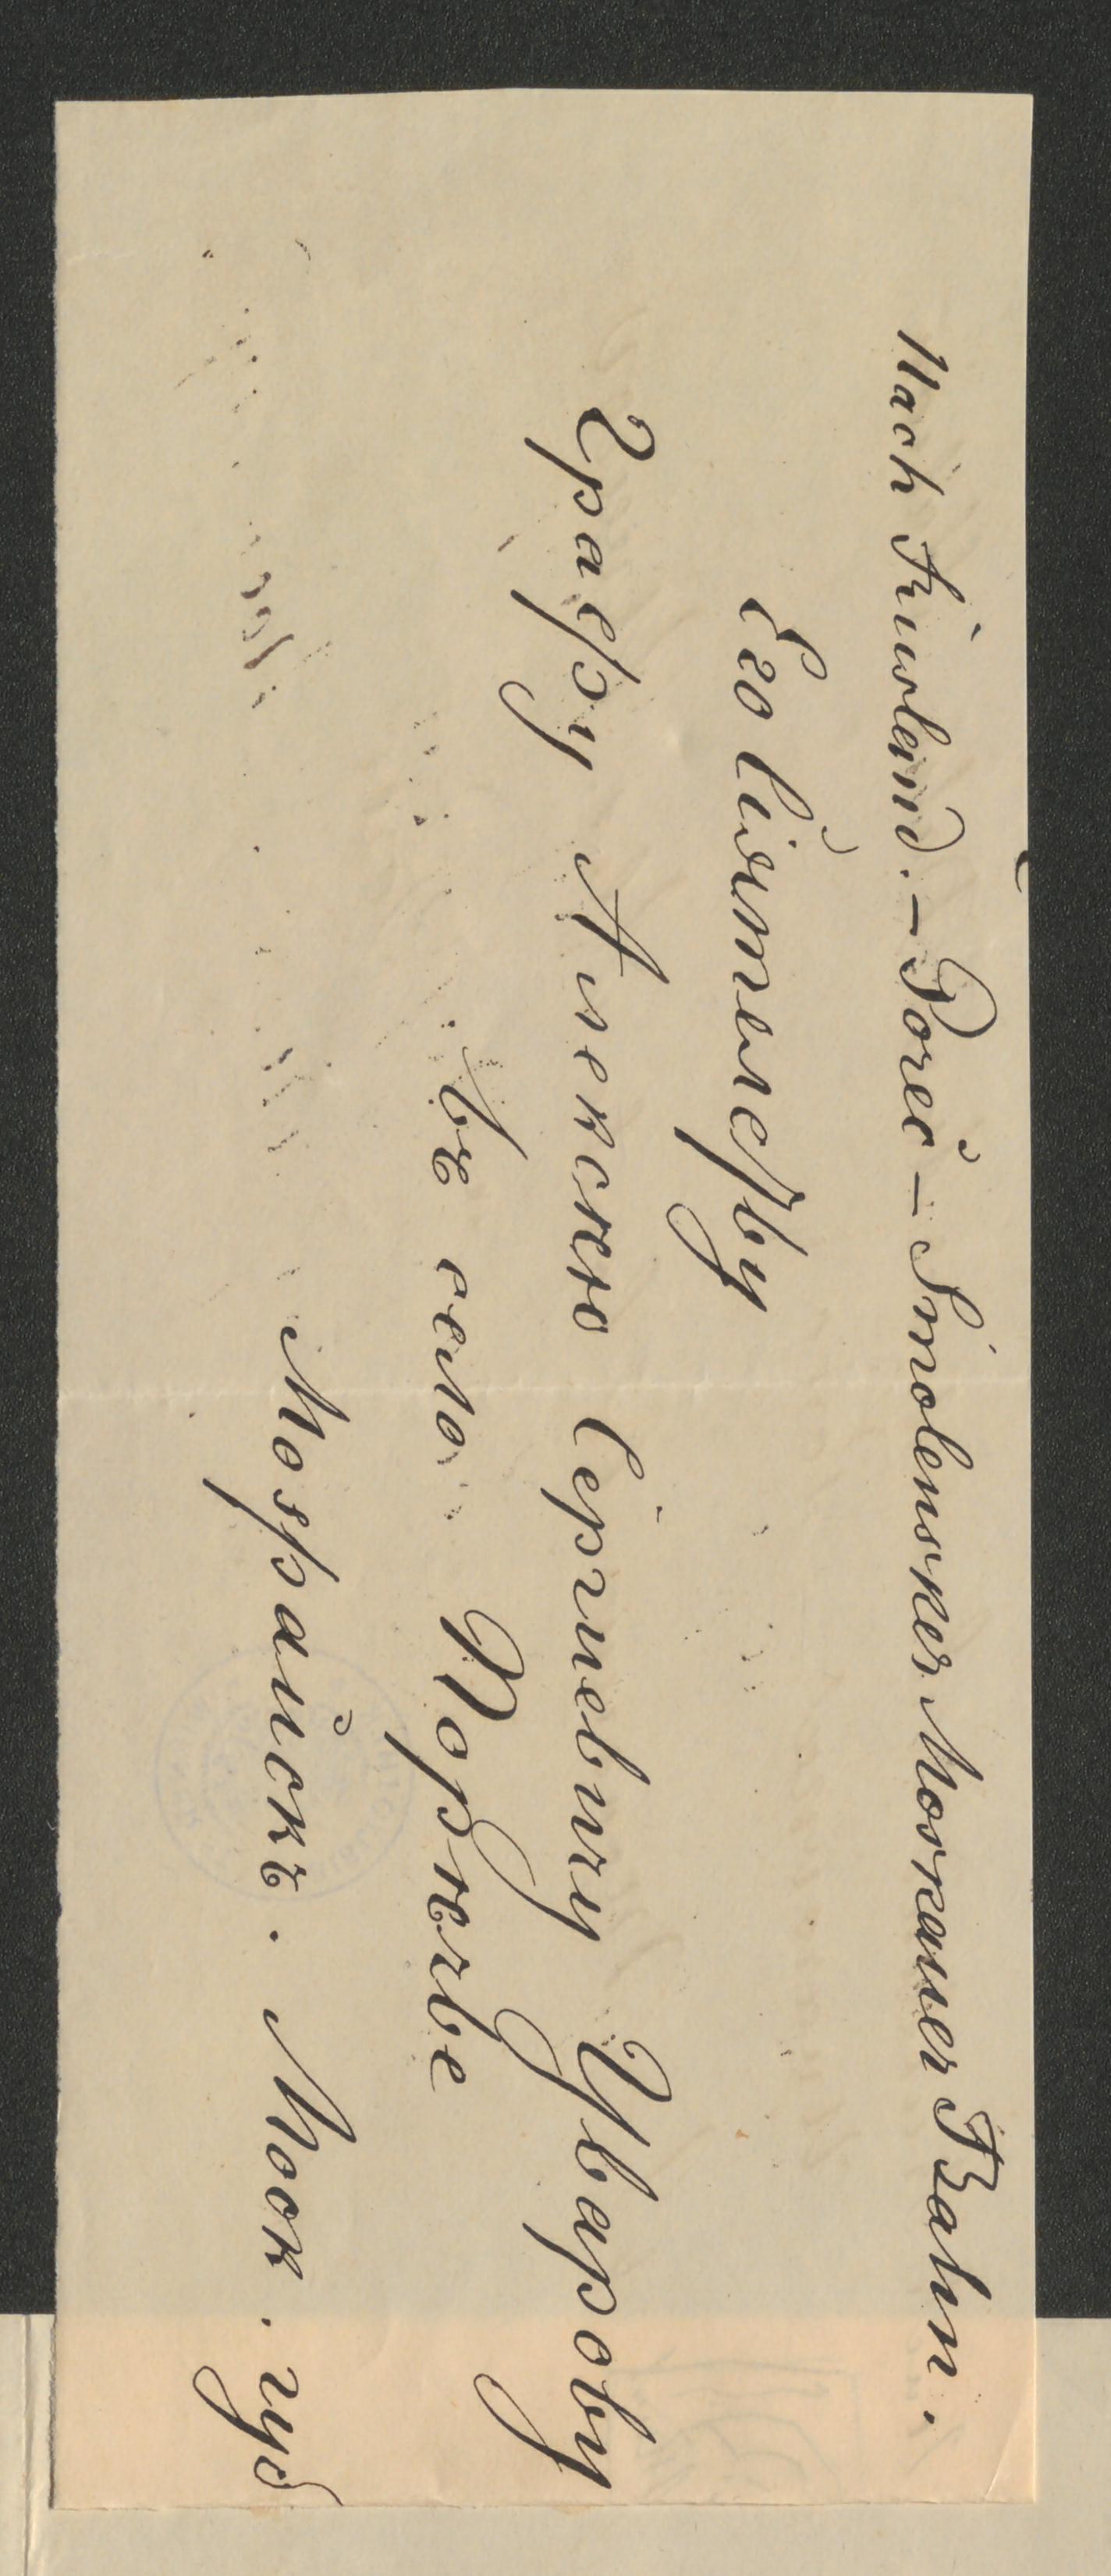 Nach Russland. – Poreč – Smolensker Moskauer Bahn.
Его Сіятельству
Графу Алексѣю Сергиевичу Уварову
въ село Порѣчье
Можайскъ. Моск. губ